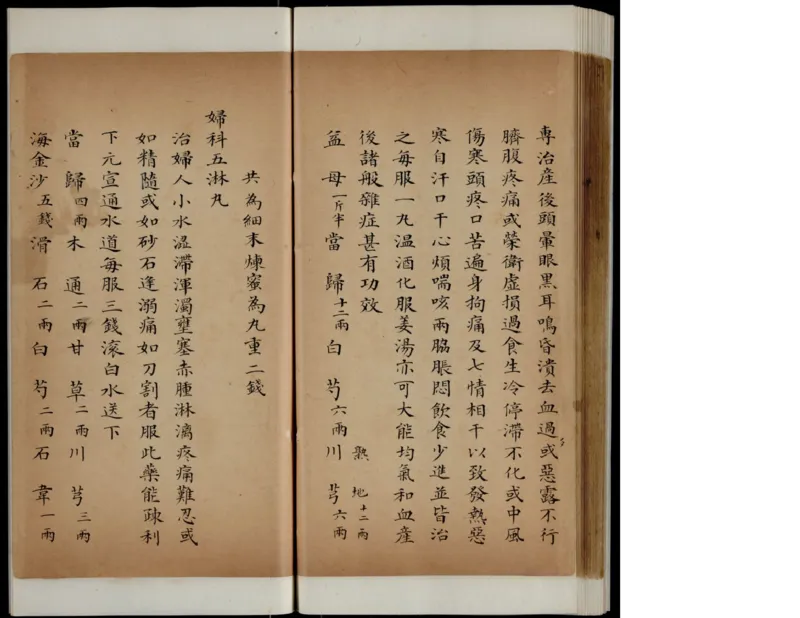 專治產後頭暈眼黑耳鳴昏潰去血過或惡露不行
臍腹疼痛或榮衛虛損過食生冷停滯不化或中風
傷寒頭疼口苦遍身拘痛及七情相干以致發熱惡
寒自汗口干心煩喘咳兩脇脹悶飲食少進並皆治
之每服一丸溫酒化服姜湯亦可大能均氣和血產
後諸般雜症甚有功效
益母一斤半當歸十二兩白芍六兩川芎六兩
熟地十二兩
共為細末煉蜜為丸重二錢
婦科五淋丸
治婦人小水澀滯渾濁壅塞赤腫淋漓疼痛難忍或
如精隨或如砂石逢溺痛如刀割者服此藥能疎利
下元宣通水道每服三錢滾白水送下
當歸四兩木通二兩甘草二兩川芎三兩
海金沙五錢滑石二兩白芍二兩石韋一兩